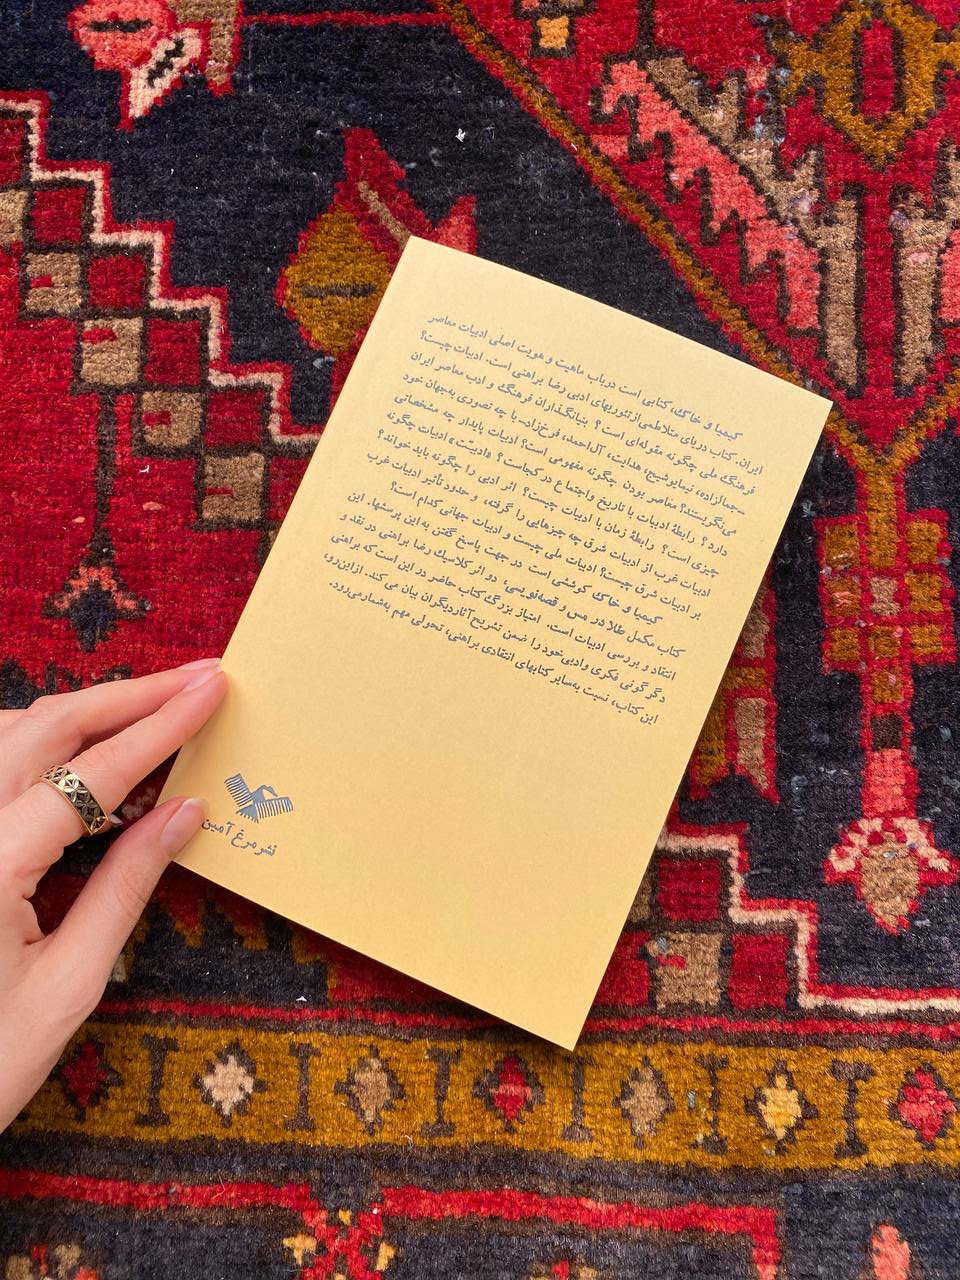 کیمیا و خاک، کتابی است درباب ماهیت و هویت اصلی ادبیات معاصر
ایران. کتاب دریای متلاطمی از تئوریهای ادبی رضا براهنی است. ادبیات چیست؟
فرهنگ ملی چگونه مقوله‌ای است؟ بنیانگذاران فرهنگ و ادب معاصر ایران
-جمالزاده، نیمایوشیج، هدایت، آل‌احمد، فرخ‌زاد- با چه تصوری به‌جهان خود
می‌نگریستند؟ معاصر بودن چگونه مفهومی است؟ ادبیات پایدار چه مشخصاتی
دارد؟ رابطهٔ ادبیات با تاریخ و اجتماع در کجاست؟ «ادبیّت» ادبیات چگونه
چیزی است؟ رابطهٔ زمان با ادبیات چیست؟ اثر ادبی را چگونه باید خواند؟
ادبیات غرب از ادبیات شرق چه چیزهایی را گرفته، و حدود تأثیر ادبیات غرب
بر ادبیات شرق چیست؟ ادبیات ملی چیست و ادبیات جهانی کدام است؟
کیمیا و خاک کوششی است در جهت پاسخ گفتن به این پرسشها. این
کتاب مکمل طلا در مس و قصه‌نویسی، دو اثر کلاسیک رضا براهنی در نقد و
انتقاد و بررسی ادبیات است. امتیاز بزرگ کتاب حاضر در این است که براهنی
دگرگونی فکری و ادبی خود را ضمن تشریح آثار دیگران بیان می‌کند. از این‌رو،
این کتاب، نسبت به‌سایر کتابهای انتقادی براهنی، تحولی مهم به‌شمار می‌رود.
نشر مرغ آمین